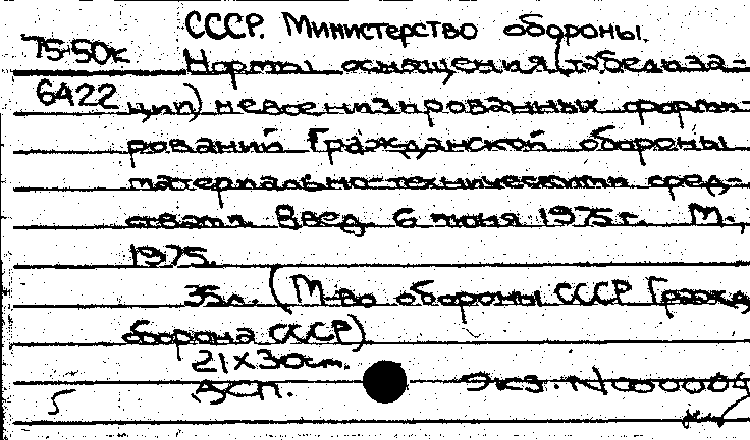 СССР. Министерство обороны.
75-50к
Нормы оснащения (табелиза-
6422
ции) невоенизированных форми-
рований Гражданской обороны
материально-техническими сред-
ствами. Введ. 6 июня 1975 г. М.,
1975.
35л. (М-во обороны СССР Гражд.
оборона СССР).
21х30см.
ДСП. Экз. N 00004
5